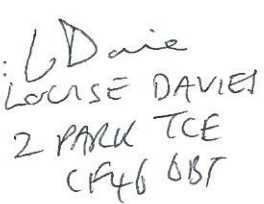 : L Davie
LOUISE DAVIES
2 PARK TCE
CF46 6BT